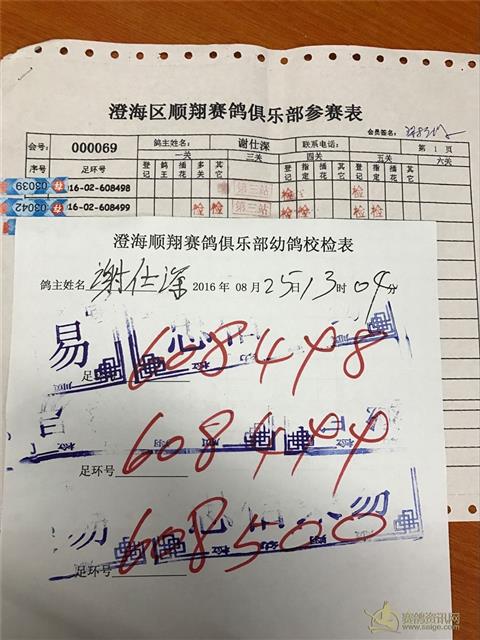 澄海区顺翔赛鸽俱乐部参赛表
会员签名:
会号: 000069 鸽主姓名: 谢仕深 联系电话: 第 1 页
一关 三关 四关 五关 六关
序号 足环号 登记 鸽王 插花 多关 其它 登记 指定 插花 其它 登记 指定 插花 其它
03039 16-02-608498 第三站 检 检
03042 16-02-608499 检 检 第三站 检 检 检
澄海顺翔赛鸽俱乐部幼鸽校检表
鸽主姓名 谢仕深 2016 年 08 月 25日 13时 04分
足环号 608498
足环号 608499
足环号 608500
赛鸽资讯网
www.saige.com